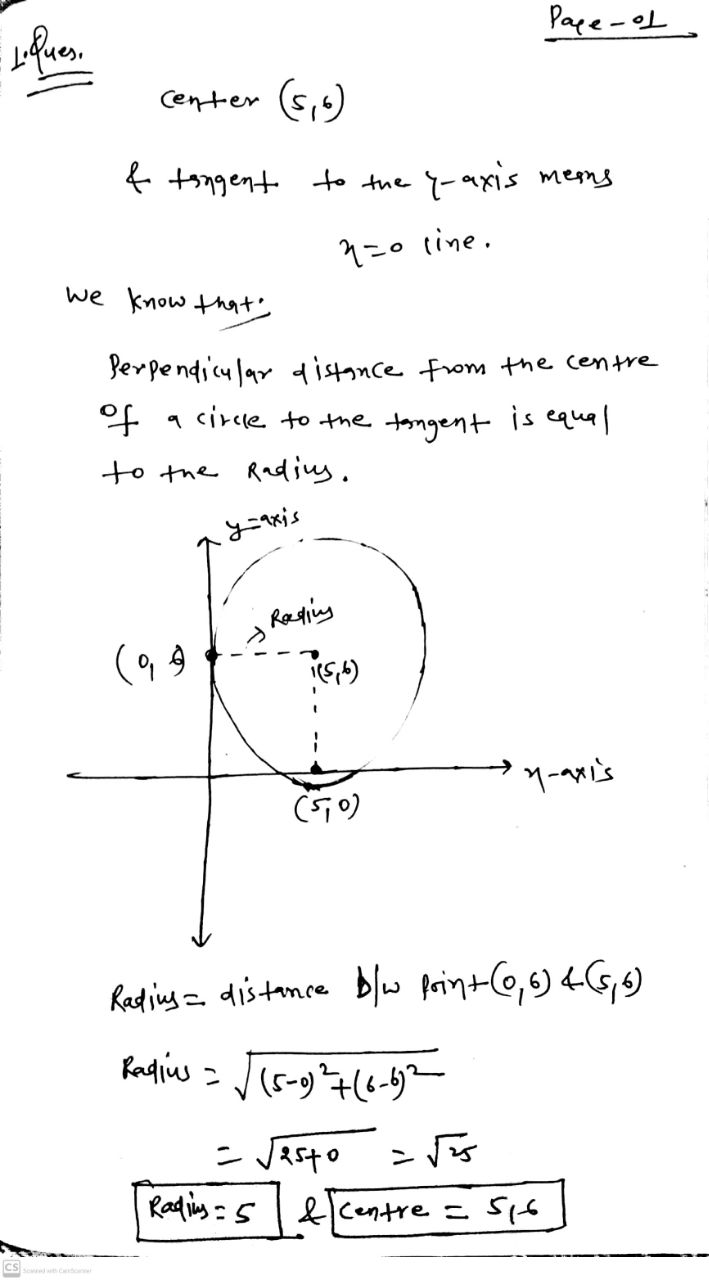 Page - 01
1. Ques.
center (5,6)
& tangent to the y-axis means
x=0 line.
We know that:
Perpendicular distance from the centre
of a circle to the tangent is equal
to the Radius.
y=axis
Radius
(0, 6)
(5,6)
x-axis
(5,0)
Radius = distance b/w point (0,6) & (5,6)
Radius = √(5-0)²+(6-6)²
= √25+0 = √25
Radius = 5 & Centre = 5,6
CS Scanned with CamScanner